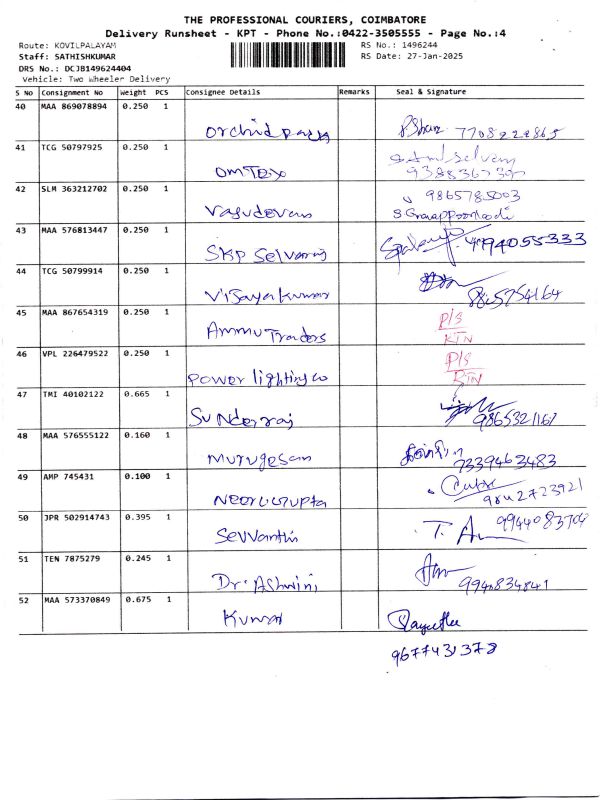 THE PROFESSIONAL COURIERS, COIMBATORE
Delivery Runsheet - KPT - Phone No.:0422-3505555 - Page No.:4
Route: KOVILPALAYAM RS No.: 1496244
Staff: SATHISHKUMAR RS Date: 27-Jan-2025
DRS No.: DCJB149624404
Vehicle: Two Wheeler Delivery
S No Consignment No Weight PCS Consignee Details Remarks Seal & Signature
40 MAA 869078894 0.250 1
Orchid 7708222865
41 TCG 50797925 0.250 1
OmTex
42 SLM 363212702 0.250 1 9865785003
Vasudevan
43 MAA 576813447 0.250 1
SKP Selvaraj 9994055333
44 TCG 50799914 0.250 1
Vijayakumar 9865754164
45 MAA 867654319 0.250 1 P/S
Ammu Traders RTN
46 VPL 226479522 0.250 1 P/S
Power lighting co RTN
47 TMI 40102122 0.665 1
Sunderraj
48 MAA 576555122 0.160 1
Murugesan 7339463483
49 AMP 745431 0.100 1
Neerugupta 9842723921
50 JPR 502914743 0.395 1 9944083704
Sevvanthi
51 TEN 7875279 0.245 1
Dr. Ashwini
52 MAA 573370849 0.675 1
Kumar
9677431378